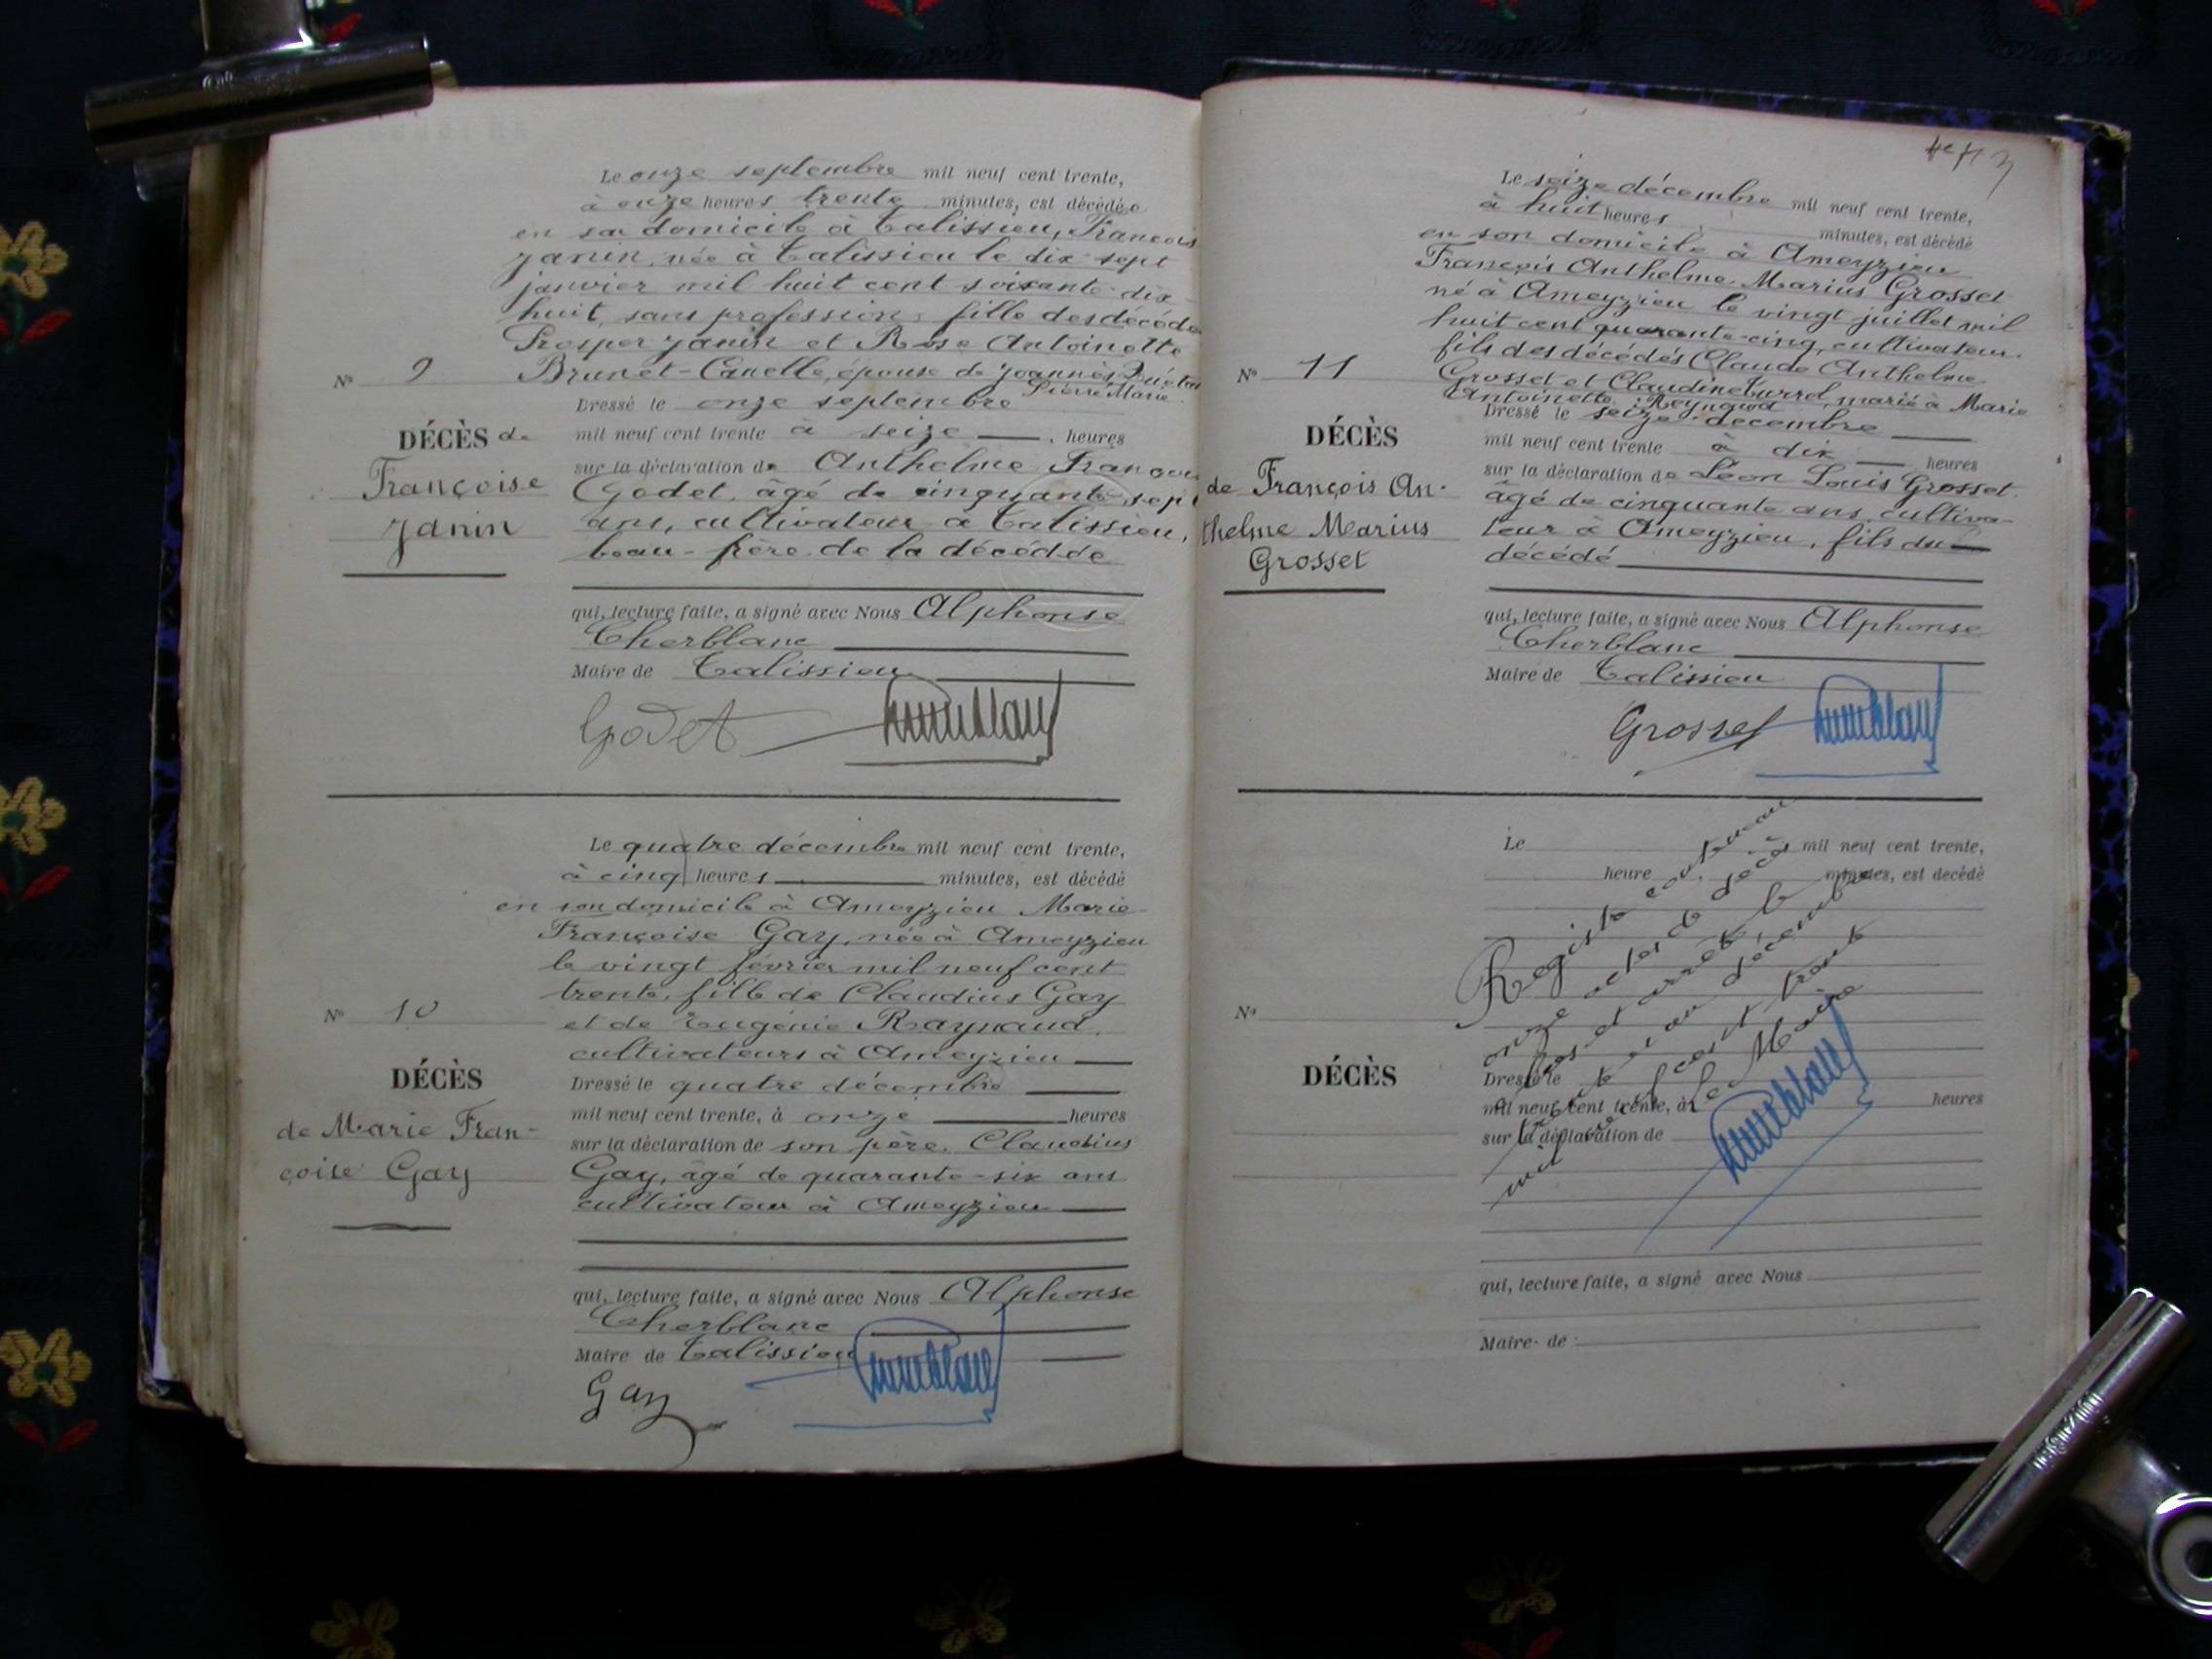 Le onze septembre mil neuf cent trente,
à onze heures trente minutes, est décédée
en son domicile à Talissieu, François
Janin, née à Talissieu le dix-sept
janvier mil huit cent soixante-dix
huit, sans profession, fille des décédés
Prosper Janin et Rose Antoinette
Brunet-Canelle, épouse de Joannès
Pierre Marie
Dressé le onze septembre
mil neuf cent trente à seize heures
sur la déclaration de Anthelme François
Godet, âgé de cinquante-sept
ans, cultivateur à Talissieu,
beau-frère de la décédée
qui, lecture faite, a signé avec Nous Alphonse
Cherblanc
Maire de Talissieu
Godet
N° 9
DÉCÈS de
Françoise
Janin
Le quatre décembre mil neuf cent trente,
à cinq heures minutes, est décédé
en son domicile à Ameyzieu Marie-
Françoise Gay, née à Ameyzieu
le vingt février mil neuf cent
trente, fille de Claudius Gay
et de Eugénie Raynaud,
cultivateurs à Ameyzieu
Dressé le quatre décembre
mil neuf cent trente, à onze heures
sur la déclaration de son père, Claudius
Gay, âgé de quarante-six ans
cultivateur à Ameyzieu
qui, lecture faite, a signé avec Nous Alphonse
Cherblanc
Maire de Talissieu
Gay
N° 10
DÉCÈS
de Marie Fran-
çoise Gay
Le seize décembre mil neuf cent trente,
à huit heures minutes, est décédé
en son domicile à Ameyzieu
François Anthelme Marius Grosset
né à Ameyzieu le vingt juillet mil
huit cent quarante-cinq, cultivateur.
fils des décédés Claude Anthelme
Grosset et Claudine Burrel, marié à Marie
Antoinette Reynaud
Dressé le seize décembre
mil neuf cent trente à dix heures
sur la déclaration de Léon Louis Grosset
âgé de cinquante ans, cultiva-
teur à Ameyzieu, fils du
décédé
qui, lecture faite, a signé avec Nous Alphonse
Cherblanc
Maire de Talissieu
Grosset
N° 11
DÉCÈS
de François An-
thelme Marius
Grosset
Le mil neuf cent trente,
heure minutes, est décédé
N°
DÉCÈS
Dressé le
mil neuf cent trente, à heures
sur la déclaration de
qui, lecture faite, a signé avec Nous
Maire de
Registre contenant
onze actes de décès
clos et arrêté le
trente et un décembre
mil neuf cent trente
Le Maire